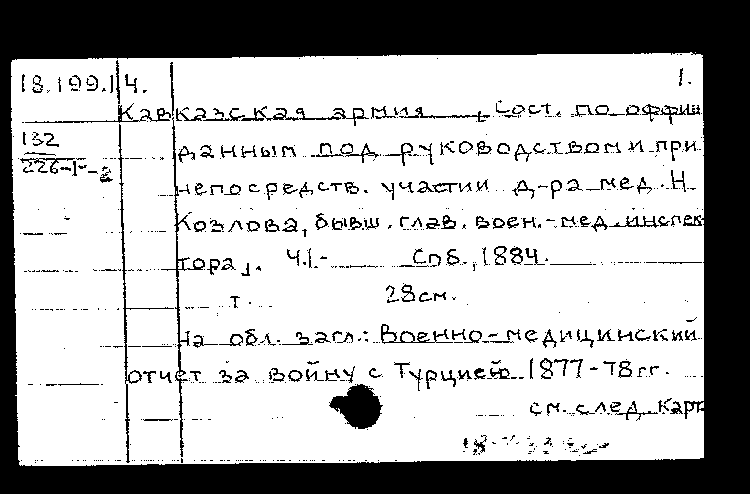 18.199.14. 1.
Кавказская армия [Сост. по оффиц
132 данным под руководством и при
226-1--2
непосредств. участии д-ра мед. Н.
Козлова, бывш. глав. воен.-мед. инспек
тора]. Ч.1- Спб., 1884.
т. 28см.
На обл. загл.: Военно-медицинский
отчет за войну с Турцией 1877-78 гг.
см. след. карт